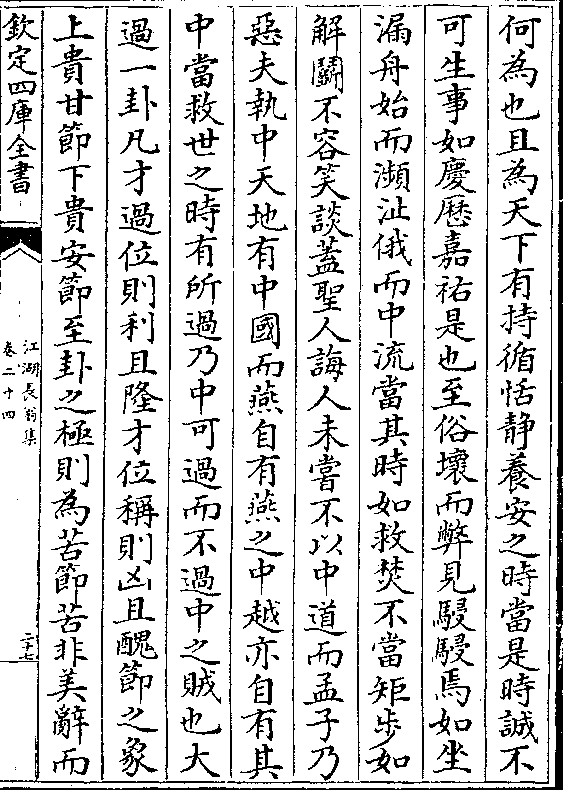 何為也且為天下有持循恬静養安之時當是時誠不
可生事如慶歴嘉祐是也至俗壞而弊見駸駸焉如坐
漏舟始而瀕沚俄而中流當其時如救焚不當矩步如
解鬭不容笑談蓋聖人誨人未嘗不以中道而孟子乃
惡夫執中天地有中國而燕自有燕之中越亦自有其
中當救世之時有所過乃中可過而不過中之賊也大
過一卦凡才過位則利且隆才位稱則凶且醜節之象
上貴甘節下貴安節至卦之極則為苦節苦非美辭而
欽定四庫全書
江湖長翁集
卷二十四
二十七